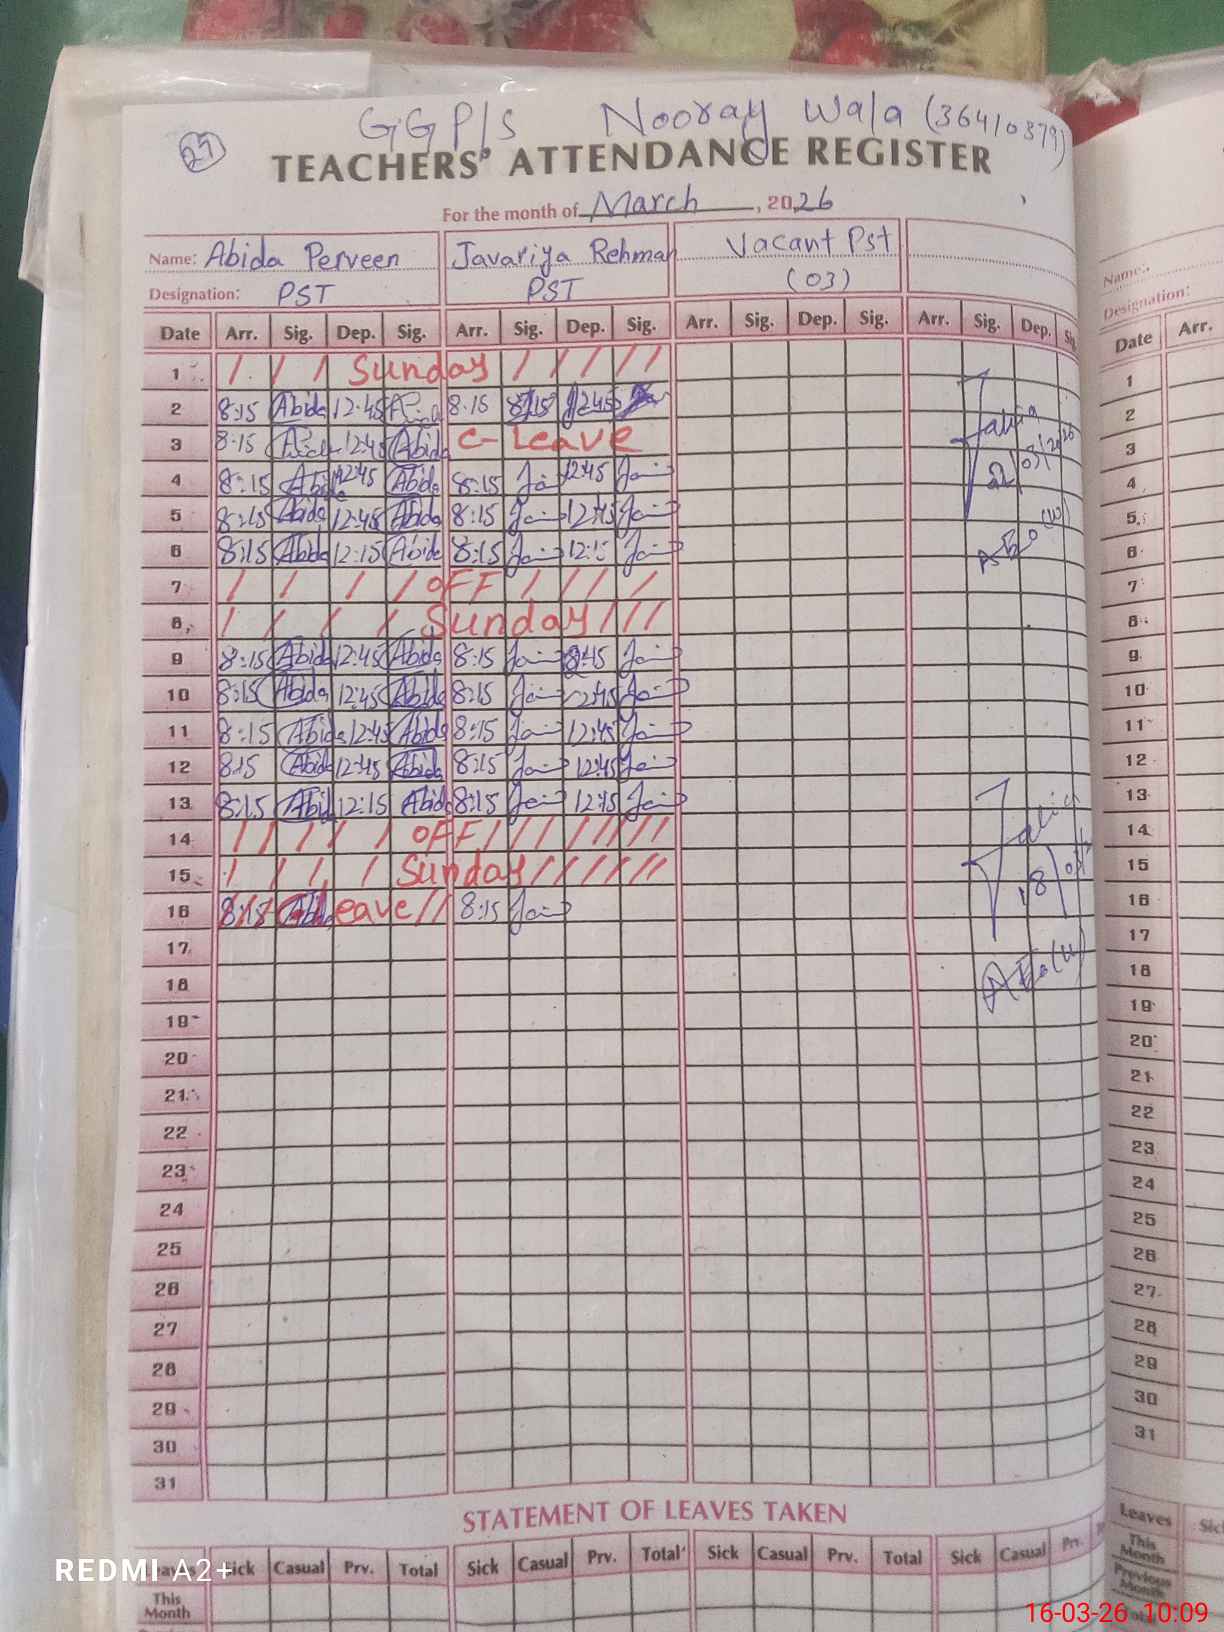 GGP/S Nooray Wala (36410379)
27
TEACHERS' ATTENDANCE REGISTER
For the month of March, 2026
Name: Abida Perveen Javariya Rehman Vacant Pst
Designation: PST PST (03)
Date Arr. Sig. Dep. Sig. Arr. Sig. Dep. Sig. Arr. Sig. Dep. Sig. Arr. Sig. Dep.
1 Sunday
2 8:15 Abida 12:45 8:15 8:15 12:45
3 8:15 12:45 Abida C-Leave
4 8:15 Abida 12:45 Abida 8:15 12:45
5 8:15 Abida 12:45 Abida 8:15 12:45
6 8:15 Abida 12:15 Abida 8:15 12:15
7 OFF
8 Sunday
9 8:15 Abida 12:45 Abida 8:15
10 8:15 Abida 12:45 Abida 8:15 12:45
11 8:15 Abida 12:45 Abida 8:15 12:45
12 8:15 Abida 12:45 Abida 8:15 12:45
13 8:15 Abid 12:15 Abida 8:15 12:15
14 OFF
15 Sunday
16 8:15 Leave 8:15
17
18
19
20
21
22
23
24
25
26
27
28
29
30
31
STATEMENT OF LEAVES TAKEN
Sick Casual Prv. Total Sick Casual Prv. Total Sick Casual Prv. Total Sick Casual Prv.
This
Month
Name
Designation:
Date Arr.
1
2
3
4
5
6
7
8
9
10
11
12
13
14
15
16
17
18
19
20
21
22
23
24
25
26
27
28
29
30
31
Leaves
This
Month
Previous
Month
REDMI A2+
16-03-26 10:09